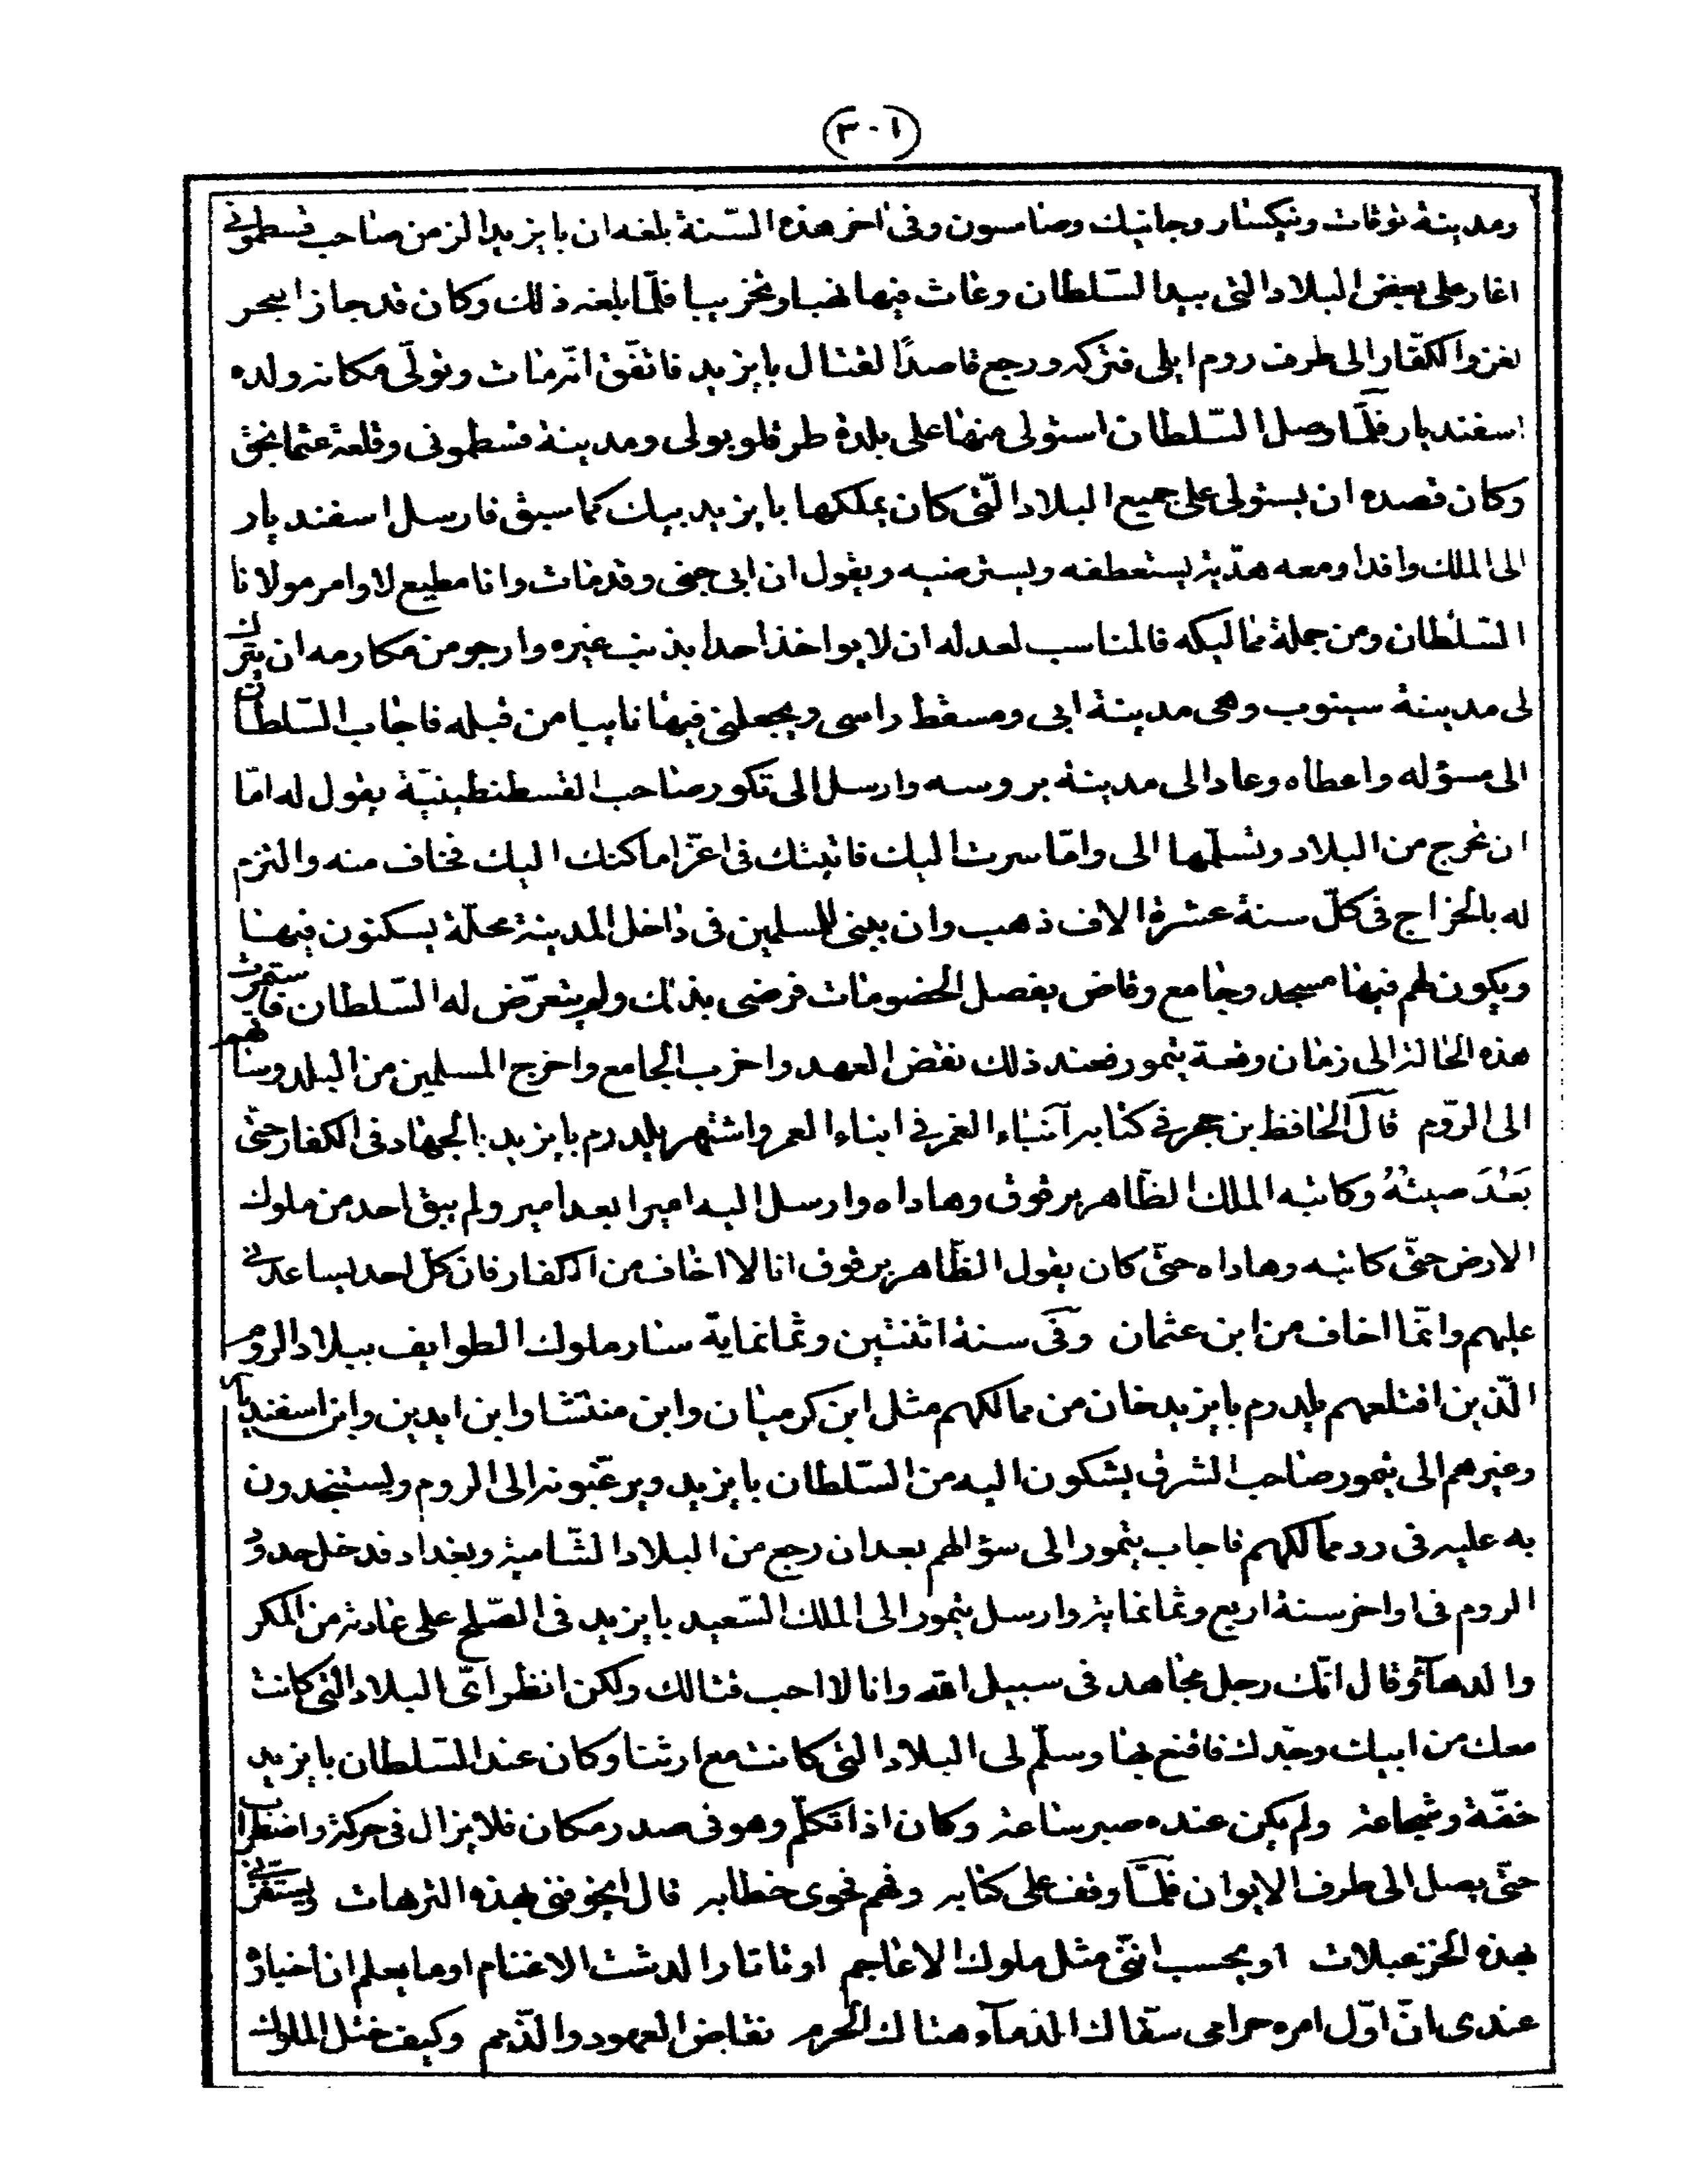 (٣٠١)
ومدينة توقات ونيكسار وجانيك وصامسون وفى اخر هذه السّنة بلغه ان بايزيد الزمن صاحب قسطمونى
اغار على بعض البلاد التى بيد السّلطان وعاث فيها نهبا وتخريبا فلمّا بلغه ذلك وكان قد جاز البحر
لغزو الكفّار الى طرف روم ايلى فتركه ورجع قاصدًا لقتال بايزيد فاتّفق انّه مات وتولّى مكانه ولده
اسفنديار فلمّا وصل السّلطان استولى منها على بلدة طرقلو بولى ومدينة قسطمونى وقلعة عثمانجق
وكان قصده ان يستولى على جميع البلاد الّتى كان يملكها بايزيد بيك كما سبق فارسل اسفنديار
الى الملك وافدا ومعه هديّة يستعطفه ويسترضيه ويقول ان ابى جنى وقد مات وانا مطيع لاوامر مولانا
السّلطان ومن جملة مماليكه فالمناسب لعدله ان لا يواخذ احدا بذنب غيره وارجو من مكارمه ان يترك
لى مدينة سينوب وهى مدينة ابى ومسقط راسى ويجعلنى فيها نايبا من قبله فاجاب السّلطان
الى مسؤله واعطاه وعاد الى مدينة بروسه وارسل الى تكور صاحب القسطنطينيّة يقول له امّا
ان تخرج من البلاد وتسلّمها الى وامّا سرت اليك فاتيتك فى اعزّ اماكنك اليك فخاف منه والتزم
له بالخراج فى كلّ سنة عشرة الاف ذهب وان يبنى للمسلمين فى داخل المدينة محلّة يسكنون فيها
ويكون لهم فيها مسجد وجامع وقاض يفصل الخصومات فرضى بذلك ولم يتعرّض له السّلطان فاستمرت
هذه الحالة الى زمان وقعة تيمور فعند ذلك نقض العهد واخرب الجامع واخرج المسلمين من البلد وساقهم
الى الرّوم قال الحافظ بن حجر فى كتابه آنباء الغمر فى ابناء العمر واشتهر يلدرم بايزيد بالجهاد فى الكفار حتّى
بَعُدَ صيتُهُ وكاتبه الملك الظّاهر برقوق وهاداه وارسل اليه اميرا بعد امير ولم يبق احد من ملوك
الارض حتّى كاتبه وهاداه حتّى كان يقول الظّاهر برقوق انا لا اخاف من الكفار فان كلّ احد يساعدنى
عليهم وانّما اخاف من ابن عثمان وفى سنة اثنتين وثمانماية سار ملوك الطوايف ببلاد الروم
الّذين اقتلعهم يلدرم بايزيد خان من ممالكهم مثل ابن كرميان وابن منتشا وابن ايدين وابن اسفنديار
وغيرهم الى تيمور صاحب الشرق يشكون اليه من السّلطان بايزيد ويرغّبونه الى الروم ويستنجدون
به عليه فى رد ممالكهم فاجاب تيمور الى سؤالهم بعد ان رجع من البلاد الشّامية وبغداد فدخل حدود
الروم فى اواخر سنة اربع وثمانماية وارسل تيمور الى الملك السّعيد بايزيد فى الصّلح على عادته من المكر
والدهآء وقال انّك رجل مجاهد فى سبيل الله وانا لا احب قتالك ولكن انظر اىّ البلاد التى كانت
معك من ابيك وجدّك فاقنع بها وسلّم لى البلاد التى كانت مع ارتنا وكان عند السّلطان بايزيد
خفّة وشجاعة ولم يكن عنده صبر ساعة وكان اذا تكلّم وهو فى صدر مكان فلا يزال فى حركة واضطراب
حتّى يصل الى طرف الايوان فلمّا وقف على كتابه وفهم فحوى خطابه قال ايخوفنى بهذه الترهات ويستفزّنى
بهذه الخزعبلات او يحسب انّنى مثل ملوك الاعاجم او تاتار الدشت الاغتام او ما يعلم ان اخباره
عندى انّ اوّل امره حرامى سفّاك الدّمآء هتاك الحرم نقاض العهود والذّمم وكيف ختل الملوك